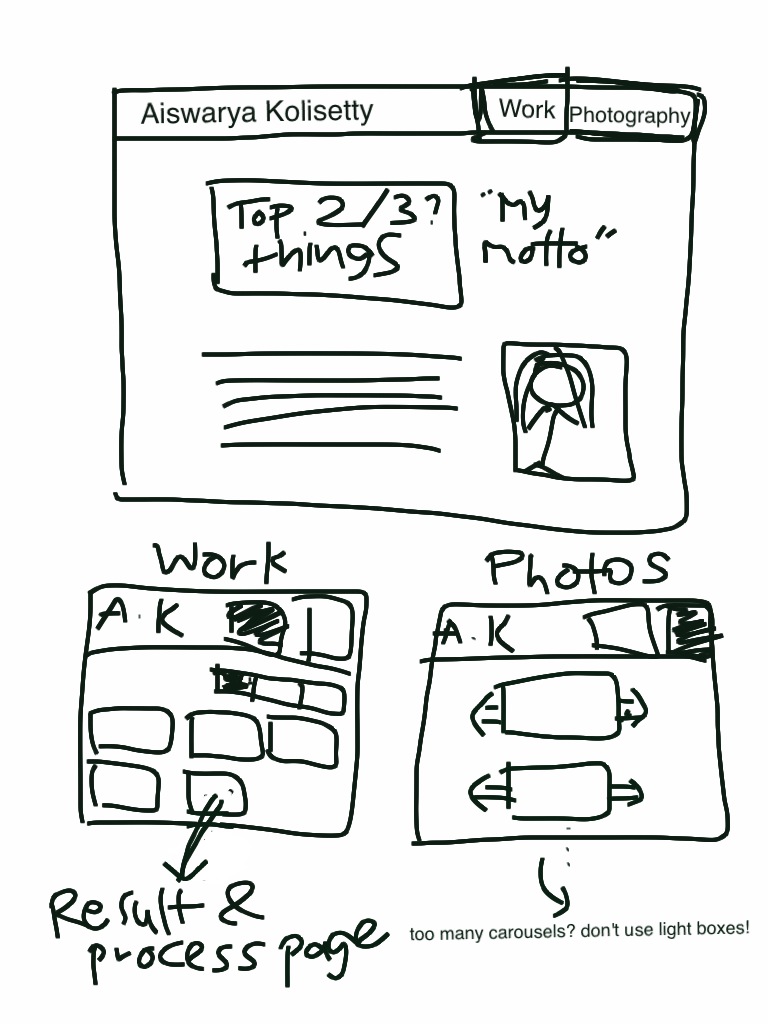 Aiswarya Kolisetty
Work
Photography
Top 2/3?
things
"My
motto"
Work
Photos
A. K
A. K
Result &
process page
too many carousels? don't use light boxes!